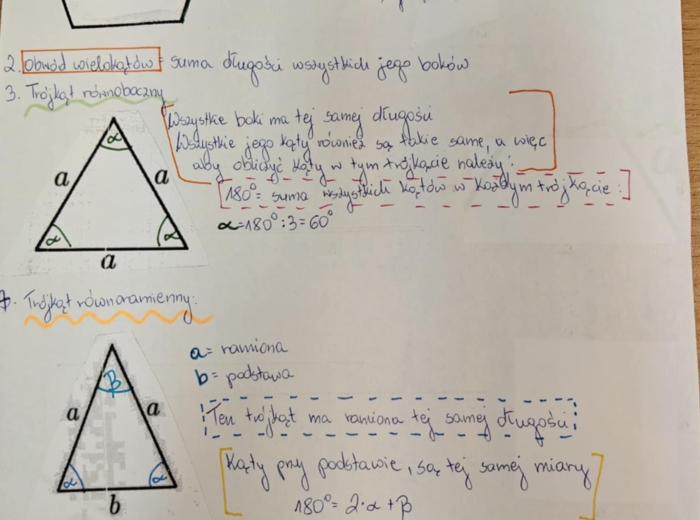 2. Obwód wielokątów = suma długości wszystkich jego boków
3. Trójkąt równoboczny
Wszystkie boki ma tej samej długości
Wszystkie jego kąty również są takie same, a więc
aby obliczyć kąty w tym trójkącie należy:
180° = suma wszystkich kątów w każdym trójkącie:
α = 180° : 3 = 60°
α
a
a
α
α
a
Trójkąt równoramienny:
a = ramiona
b = podstawa
β
a
a
Ten trójkąt ma ramiona tej samej długości
α
α
b
Kąty przy podstawie, są tej samej miary
180° = 2·α + β